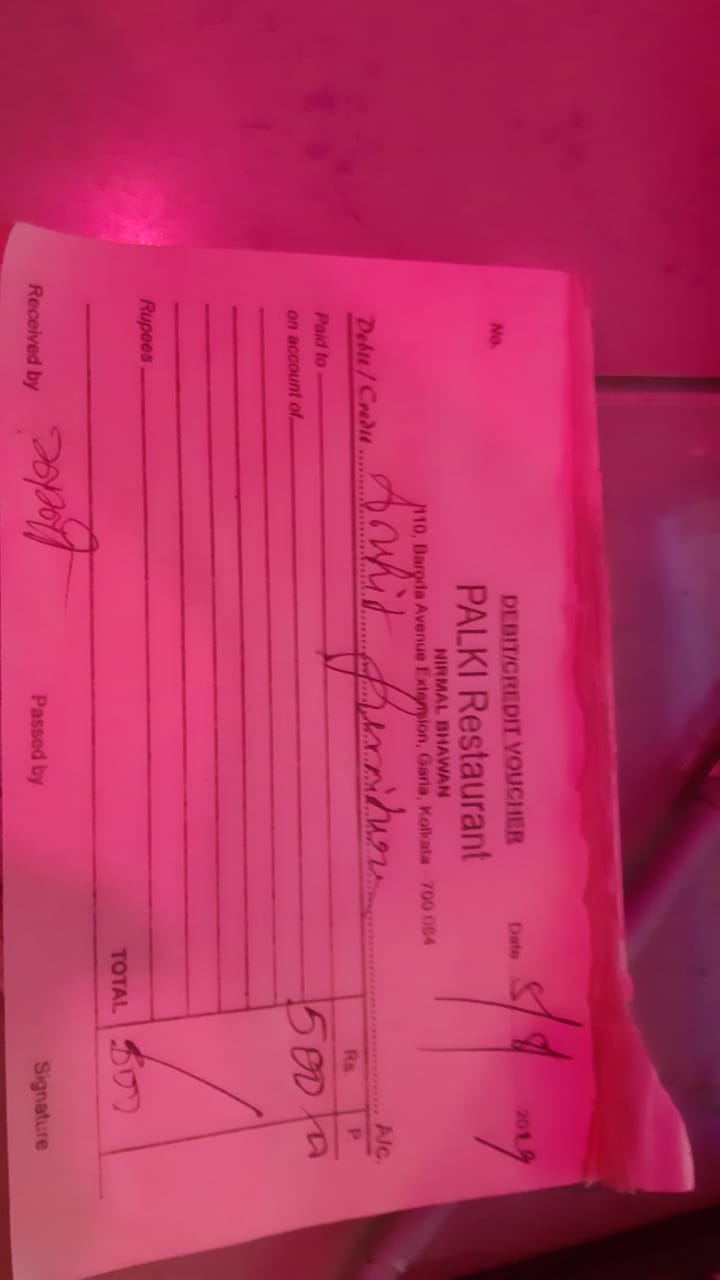 DEBIT/CREDIT VOUCHER
No. Date 8/8 2019
PALKI Restaurant
NIRMAL BHAWAN
110, Baroda Avenue Extension, Garia, Kolkata - 700 084
Debit / Credit A/c.
Rs. P
Paid to 500
on account of
Rupees
TOTAL 500
Received by Passed by Signature